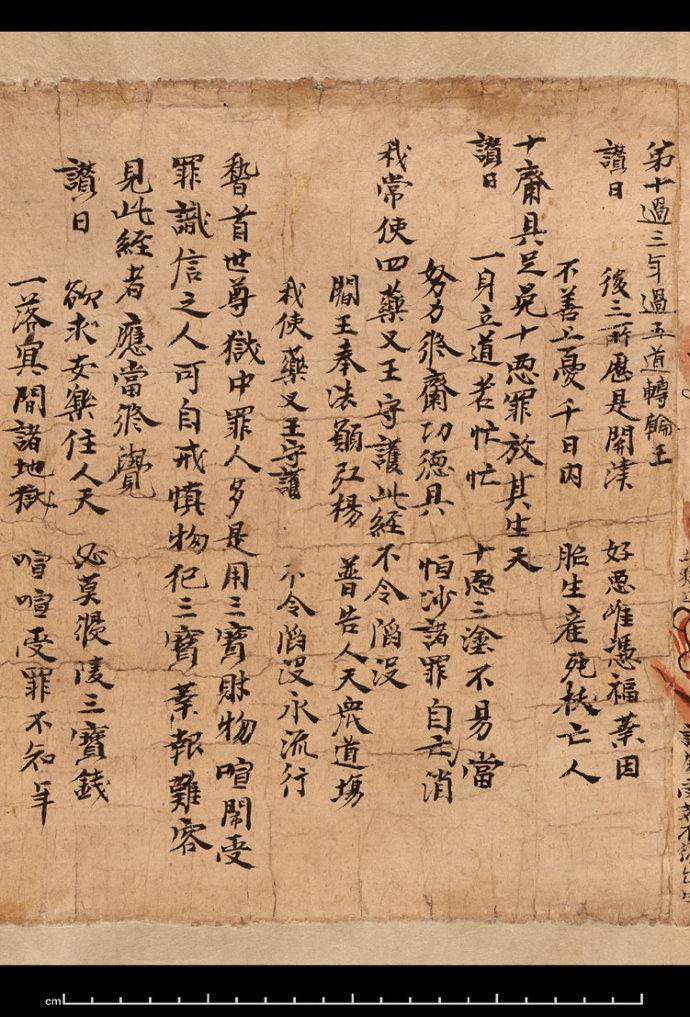 第十過三年過五道轉輪王
讚曰 後三所歷是開津 好惡唯憑福業因
不善上憂千日內 胎生産死拔亡人
十齋具足免十惡罪放其生天
讚曰 一身立道若忙忙 十惡三塗不易當
努力修齋功德具 恒沙諸罪自
消
我常使四藥叉王守護此經不令滔沒
閻王奉法願弘楊 普告人天衆道塲
我使藥叉王守護 不令滔沒永流行
稽首世尊獄中罪人多是用三寳財物喧鬧受
罪識信之人可自戒慎物犯三寳業報難容
見此經者應當修覺
讚曰 欲求安樂住人天 必莫侵陵三寳錢
一落冥間諸地獄 喧喧受罪不知年